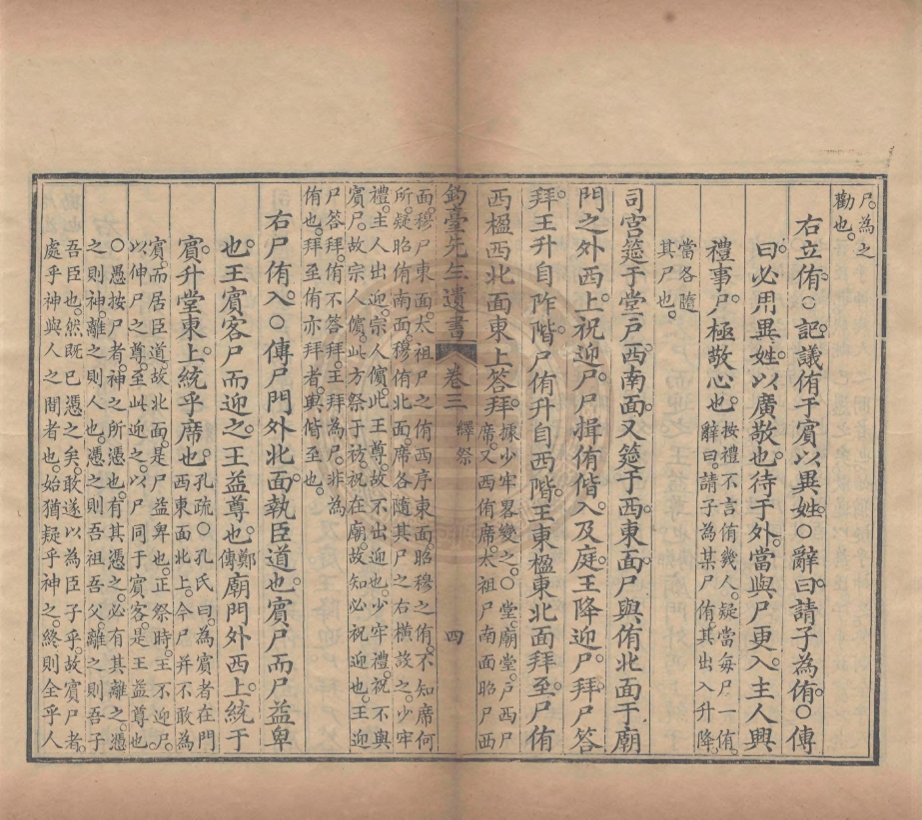 尸爲之
勸也。
右立侑。○記議侑于賓以異姓。○辭曰。請子為侑。○傳
曰。必用異姓。以廣敬也。待于外。當與尸更入。主人興
禮事尸。極敬心也。按禮不言侑幾人。疑當每尸一侑。
辭曰。請子為某尸侑。其出入升降。
當各隨
其尸也。
司宮筵于堂。戶西南面。又筵于西。東面。尸與侑北面于廟
門之外西上。祝迎尸。尸揖侑偕入。及庭。王降迎尸。拜。尸答
拜。王升自阼階。尸侑升自西階。王東楹東北面拜至。尸侑
西楹西北面東上答拜。據少牢畧變之。○堂廟堂。戶西尸
席。又西侑席。太祖尸南面昭尸西
釣臺先生遺書
卷三
繹祭
四
面穆尸東面。太祖尸之侑西序東面昭穆之侑。不知席何
所。疑昭侑南面穆侑北面。席各隨其尸之右橫設之。少牢
禮。主人出迎。宗人儐。此王尊。故不出迎也。少牢禮。祝不與
賓尸。故宗人儐。此方祭于祊。祝在廟。故知必祝迎也。王迎
尸答拜。侑不答拜。王拜為尸。非為
侑也。拜至侑亦拜者。與偕至也。
右尸侑入。○傳尸門外北面。執臣道也。賓尸而尸益卑
也。王賓客尸而迎之。王益尊也。鄭傳廟門外西上。統于
賓。升堂東上。統乎席也。孔疏○孔氏曰。為賓者在門
西東面北上。今尸并不敢為
賓。而居臣道。故北面。是尸益卑也。正祭時。王不迎尸。
以伸尸之尊。至此迎之。以尸同于賓客。是王益尊也。
○愚按尸者。神之所憑也。有其憑之。必有其離之。憑
之則神。離之則人也。憑之則吾祖吾父。離之則吾子
吾臣也。然既已憑之矣。敢遂以為臣子乎。故賓尸者。
處乎神與人之間者也。始猶疑乎神之。終則全乎人